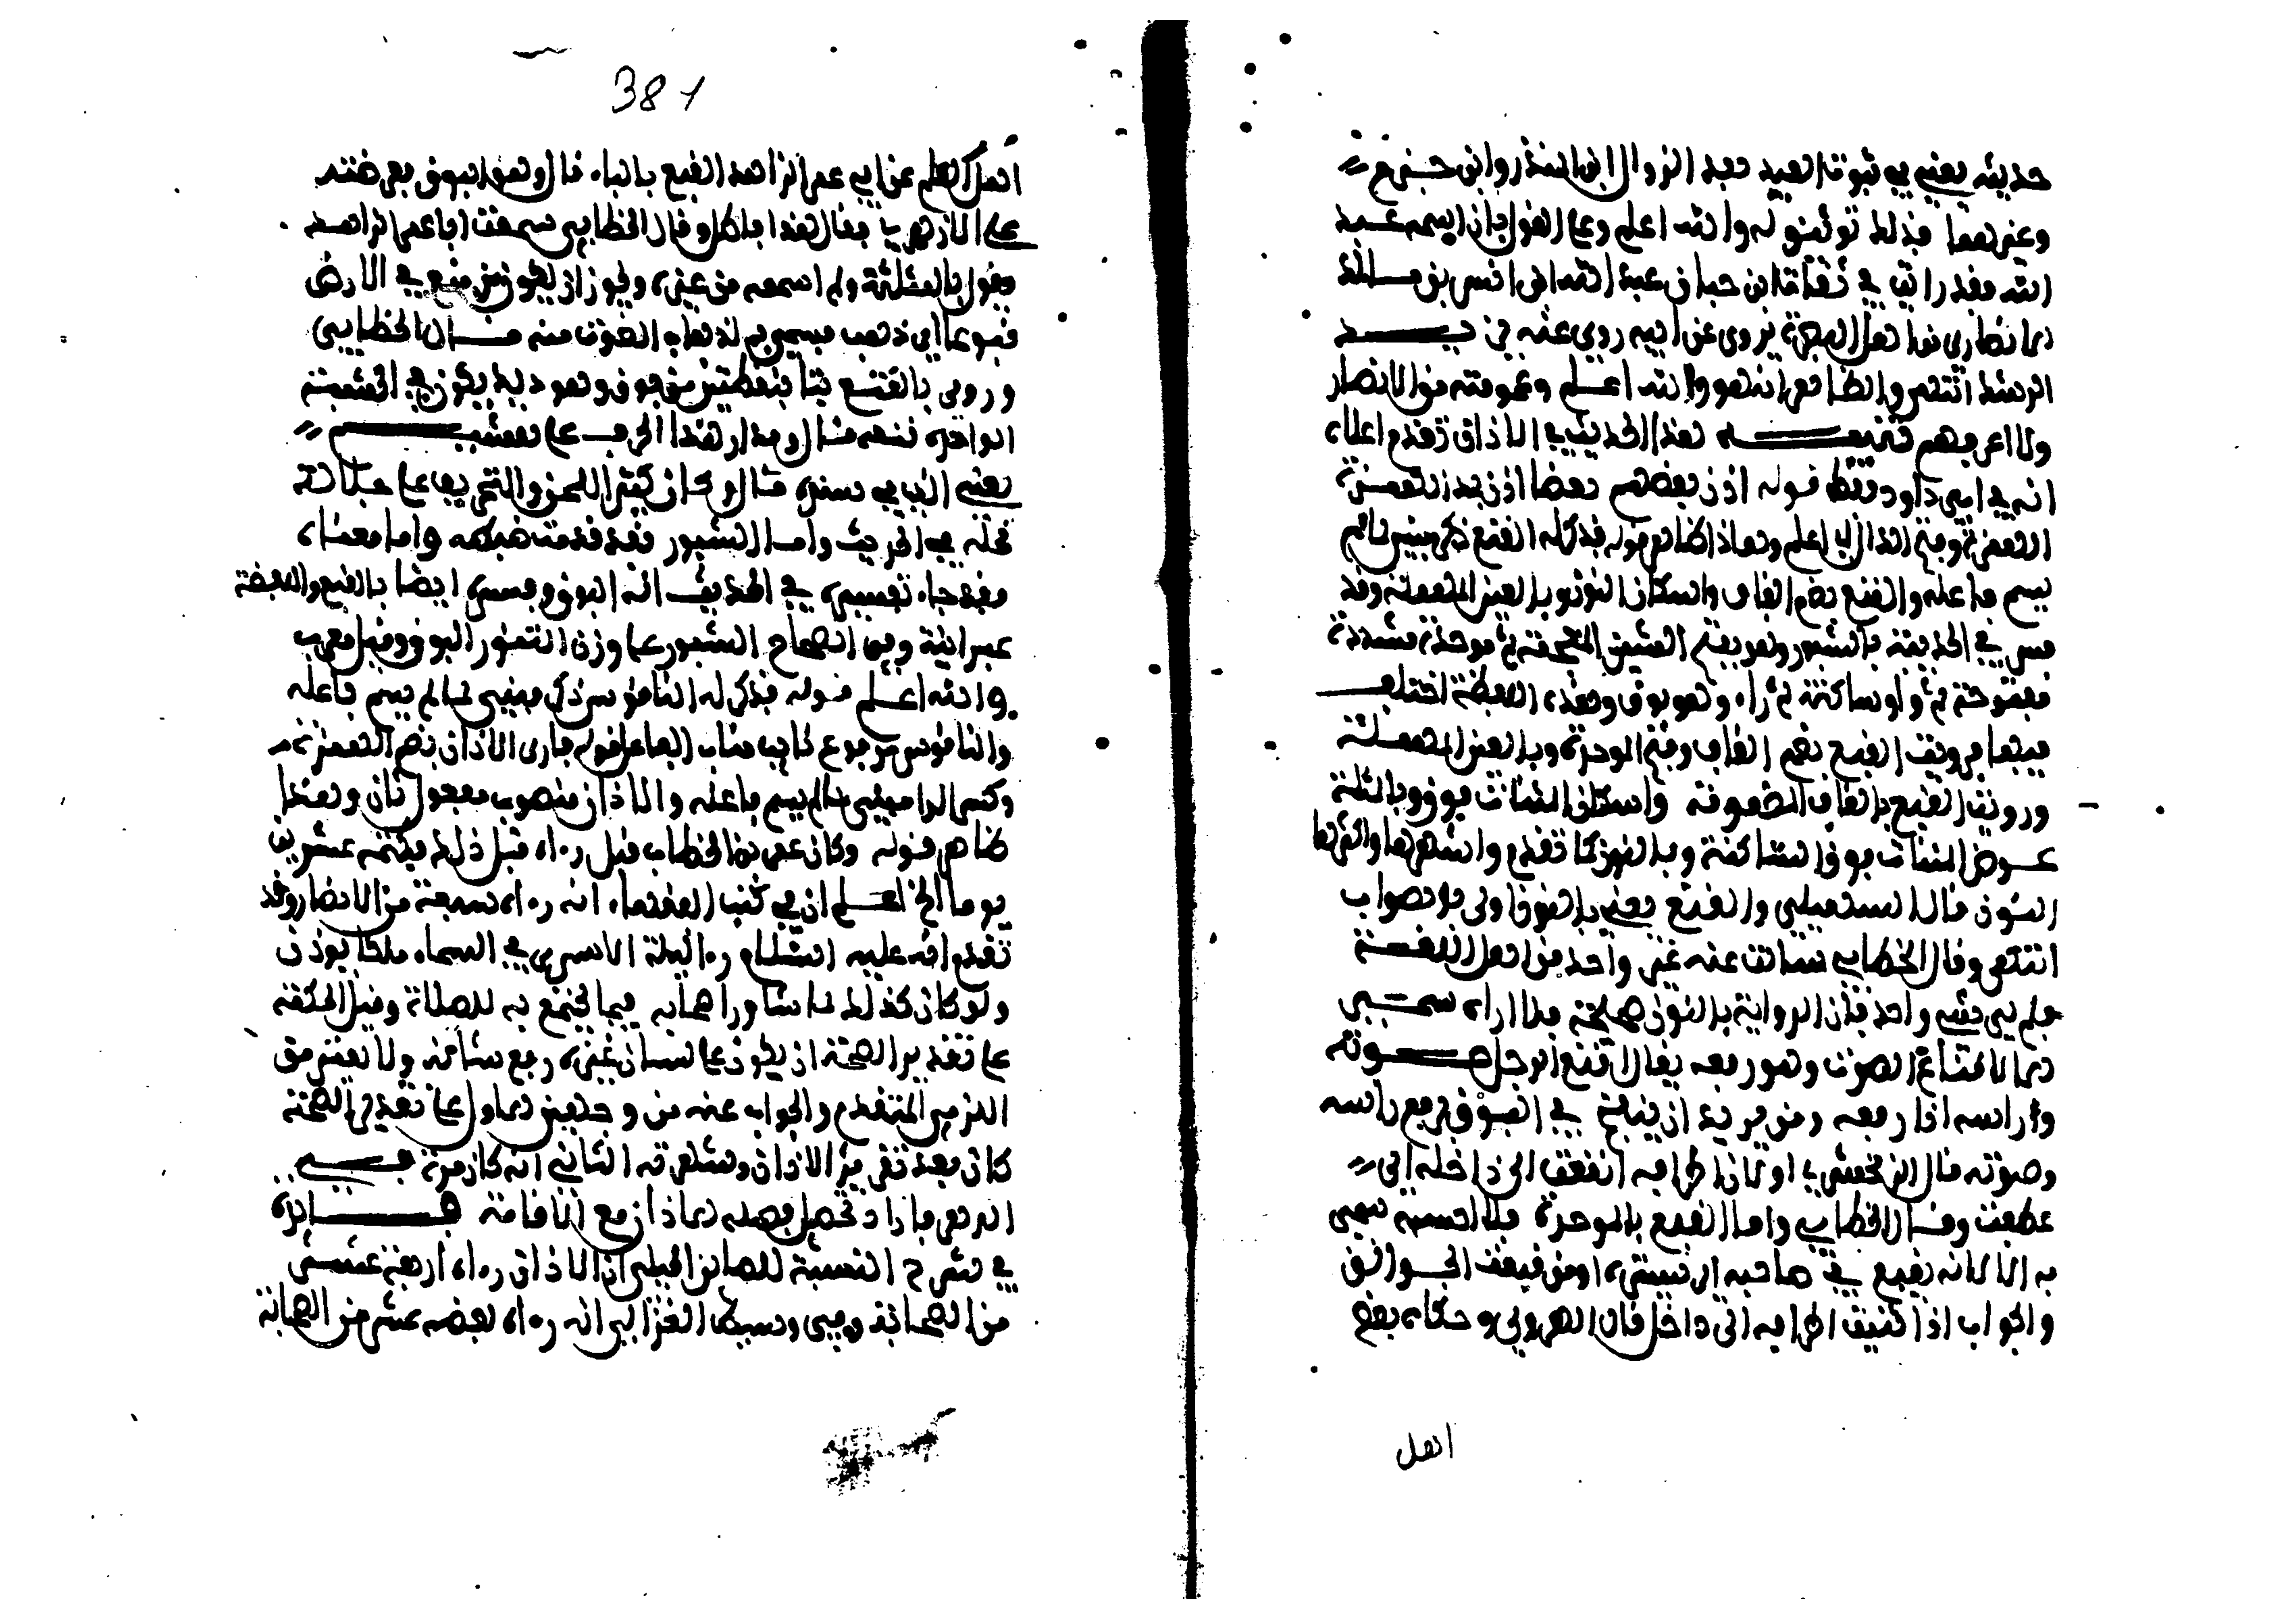 حديثه يعني في ثبوت العيد بعد الزوال ابن المنذر وابن حزم
وغيرهما فذلك توثيق له والله اعلم وعلى القول بان اسمه عبد
الله فقد رايت في ثقات ابن حبان عبد الله ابن انس بن مالك
الانصاري من اهل البصرة يروي عن ابيه روي عنه
انتهى والظاهر انه هو والله اعلم وعمومته من الانصار
ولا اعرفهم تنبيه هذا الحديث في الاذان تقدم اعلاه
انه في ابي داود فقط قوله اذن بعضهم بعضا اذن بمد الهمزة
قوله فذكر له القنع ذكر مبني لما لم
يسم فاعله والقنع بضم القاف واسكان النون وبالعين المهملة وقد
فسر في الحديث بالشبور وهو بفتح الشين المعجمة ثم موحدة مشددة
مضمومة ثم واو ساكنة ثم راء وهو بوق وهذه اللفظة اختلف
فيها فرويت القبع بضم القاف وفتح الموحدة وبالعين المهملة
ورويت القتع بالقاف المضمومة واسكان المثناة فوق وبالمثلثة
عوض المثناة فوق الساكنة وبالنون كما تقدم واشهرها واكثرها
النون قال السهيلي والقنع يعني بالنون اولى بالصواب
انتهى وقال الخطابي سالت عنه غير واحد من اهل اللغة
فلم يثبتوه على شيء واحد فان الرواية بالنون صحيحة فلا اراه سمي
الا لاقناع الصوت وهو رفعه يقال اقنع الرجل صوته
وراسه اذا رفعه ومن يريد ان ينفخ في البوق يرفع راسه
وصوته قال الزمخشري او لان اطرافه اقنعت الى داخله اي
عطفت وقال الخطابي واما القبع بالموحدة فلا احسبه سمي
به الا لانه يقبع في صاحبه اي يستره او من قبعت الجوالق
والجراب اذا ثنيت اطرافه الى داخل قال الهروي وحكاه بعض
اهل
381
اهل العلم عن ابي عمر الزاهد القبع بالباء قال وهو البوق فعرضته
على الازهري فقال هذا باطل وقال الخطابي سمعت ابا عمر الزاهد
يقول بالمثلثة ولم اسمعه من غيره ويجوز ان يكون من قثع في الارض
قثوعا اي ذهب فسمي به لذهاب الصوت منه قال الخطابي
وروي بالقتع بتا بنقطتين من فوق وهو دود يكون في الخشبة
الواحدة قتعة قال ومدار هذا الحرف على هشيم
يعني الذي في سنده قال وكان كثير اللحن والتحريف على جلالة
محله في الحديث واما الشبور فقد قدمت ضبطه واما معناه
فقد جاء تفسيره في الحديث انه البوق وفسره ايضا بالقنع واللفظة
عبرانية وفي الصحاح الشبور على وزن التنور البوق وقيل معرب
والله اعلم قوله فذكر له الناقوس ذكر مبني لما لم يسم فاعله
والناقوس مرفوع نائب مناب الفاعل قوله فاري الاذان بضم الهمزة
وكسر الرا مبني لما لم يسم فاعله والاذان منصوب مفعول ثان وهذا
ظاهر قوله وكان عمر بن الخطاب قبل راه قبل ذلك فكتمه عشرين
يوما الخ اعلم ان في كتب الفقهاء انه راه سبعة من الانصار وقد
تقدم انه عليه السلام راى ليلة الاسرى في السماء ملكا يوذن
ولو كان كذلك لما شاور اصحابه فيما يجمع به للصلاة وقيل الحكمة
على تقدير الصحة ان يكون على لسان غيره رفع شانه ولا
المتقدم والجواب عنه من وجهين على تقدير الصحة
كان بعد الاذان الثاني انه كان مرة
مع الاقامة
في شرح التنبيه للصائن الجيلي ان الاذان راه اربعة عشر
من الصحابة وفي وسيط الغزالي انه راه بضعة عشر من الصحابة